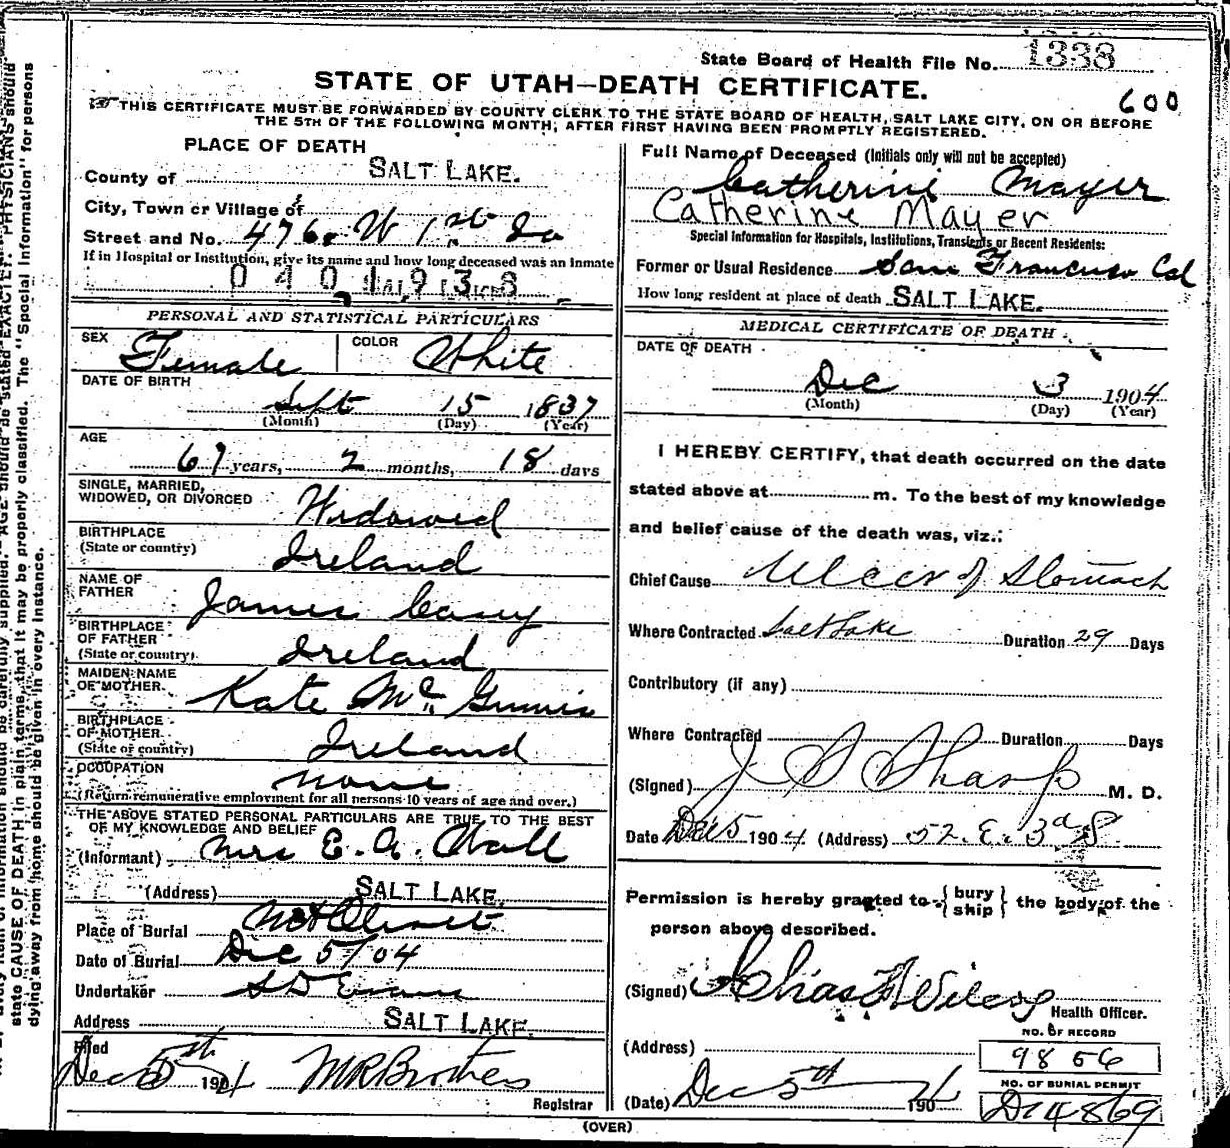 State Board of Health File No. 1338
STATE OF UTAH—DEATH CERTIFICATE.
600
THIS CERTIFICATE MUST BE FORWARDED BY COUNTY CLERK TO THE STATE BOARD OF HEALTH, SALT LAKE CITY, ON OR BEFORE
THE 5TH OF THE FOLLOWING MONTH, AFTER FIRST HAVING BEEN PROMPTLY REGISTERED.
PLACE OF DEATH
County of SALT LAKE.
City, Town or Village of
Street and No. 476 W 1st So
If in Hospital or Institution, give its name and how long deceased was an Inmate
PERSONAL AND STATISTICAL PARTICULARS
SEX Female COLOR White
DATE OF BIRTH
Sept 15 1837
(Month) (Day) (Year)
AGE
67 years, 2 months, 18 days
SINGLE, MARRIED,
WIDOWED, OR DIVORCED Widowed
BIRTHPLACE
(State or country) Ireland
NAME OF
FATHER James Casey
BIRTHPLACE
OF FATHER
(State or country) Ireland
MAIDEN NAME
OF MOTHER Kate McGinnis
BIRTHPLACE
OF MOTHER
(State or country) Ireland
OCCUPATION none
(Return remunerative employment for all persons 10 years of age and over.)
THE ABOVE STATED PERSONAL PARTICULARS ARE TRUE TO THE BEST
OF MY KNOWLEDGE AND BELIEF
(Informant) Mrs E. A. Wall
(Address) SALT LAKE,
Place of Burial Mt Olivet
Date of Burial Dec 5/04
Undertaker S D Evans
Address SALT LAKE,
Filed
Dec 5th 1904 M R Brothers
Registrar
Full Name of Deceased (Initials only will not be accepted)
Catherine Mayer
Catherine Mayer
Special Information for Hospitals, Institutions, Transients or Recent Residents:
Former or Usual Residence San Francisco Cal
How long resident at place of death SALT LAKE.
MEDICAL CERTIFICATE OF DEATH
DATE OF DEATH
Dec 3 1904
(Month) (Day) (Year)
I HEREBY CERTIFY, that death occurred on the date
stated above at m. To the best of my knowledge
and belief cause of the death was, viz.:
Chief Cause Ulcer of Stomach
Where Contracted Salt Lake Duration 29 Days
Contributory (if any)
Where Contracted Duration Days
(Signed) J S Sharp M. D.
Date Dec 5 1904 (Address) 52 E. 3d S
Permission is hereby granted to { bury
ship } the body of the
person above described.
(Signed) Chas F Wilcox
Health Officer.
NO. OF RECORD
(Address) 9856
NO. OF BURIAL PERMIT
(Date) Dec 5th 1904 D 4869
(OVER)
state CAUSE OF DEATH in plain terms, that it may be properly classified. The "Special Information" for persons
dying away from home should be given in every instance.